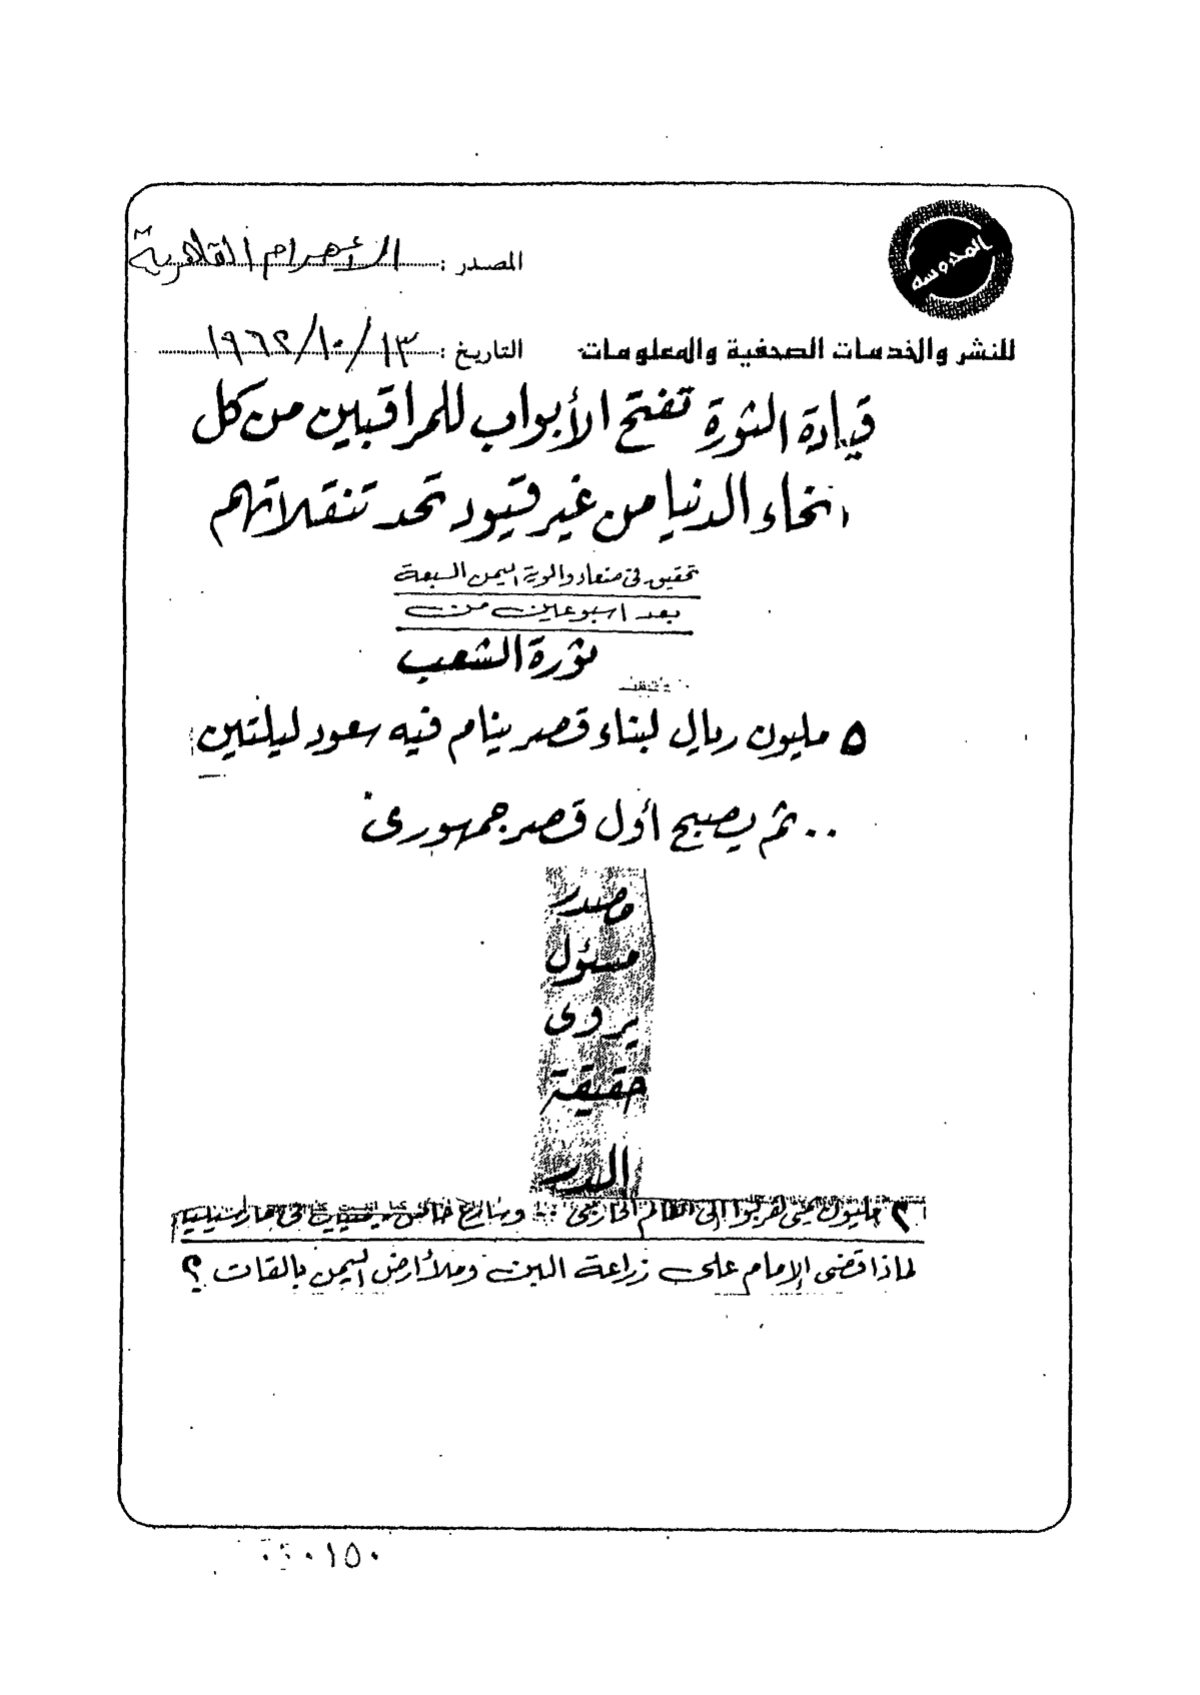 المحروسة
المصدر : الأهرام القاهرية
للنشر والخدمات الصحفية والمعلومات
التاريخ : ١٣/١٠/١٩٦٢
قيادة الثورة تفتح الأبواب للمراقبين من كل
انحاء الدنيا من غير قيود تحد تنقلاتهم
تحقيق في صنعاء والوية اليمن السبعة
بعد اسبوعين من
ثورة الشعب
٥ مليون ريال لبناء قصر ينام فيه سعود ليلتين
.. ثم يصبح أول قصر جمهورى
مصدر
مسئول
يروى
حقيقة
البدر
٢ مليون يمنى هربوا إلى العالم الخارجى .. وشارع خاص فى مارسيليا
لماذا قضى الإمام على زراعة البن وملأ أرض اليمن بالقات ؟